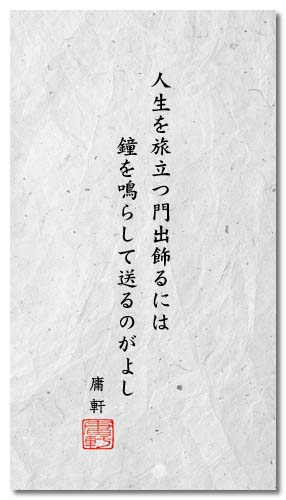 人生を旅立つ門出飾るには
鐘を鳴らして送るのがよし
庸軒